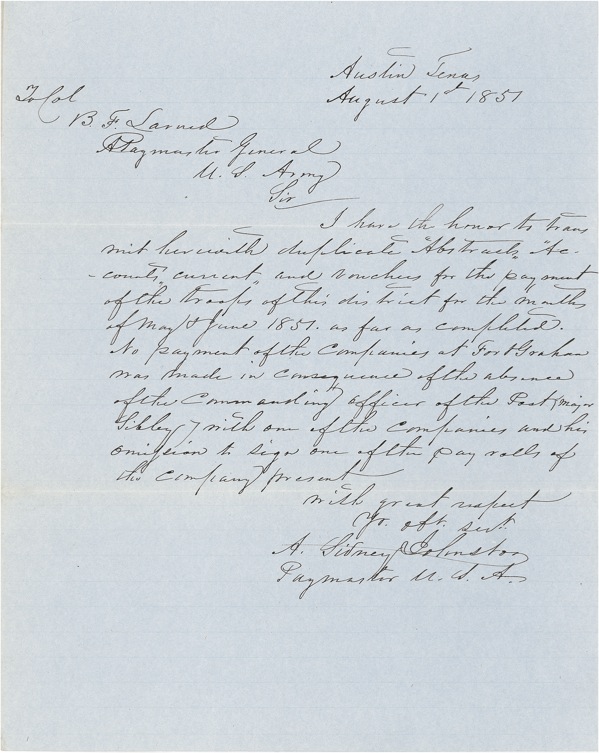 Austin Texas
August 1st 1851
To Col
B. F. Larned
Paymaster General
U. S. Army
Sir
I have the honor to trans
mit herewith duplicate "Abstracts," "Ac-
-counts, current" and vouchers for the payment
of the troops of this district for the months
of May & June 1851. as far as completed.
No payment of the companies at Fort Graham
was made in consequence of the absence
of the commanding officer of the Post (major
Sibley) with one of the companies and his
omission to sign one of the pay rolls of
the company present
with great respect
Yr. obt. svt.
A. Sidney Johnston
Paymaster U. S. A.